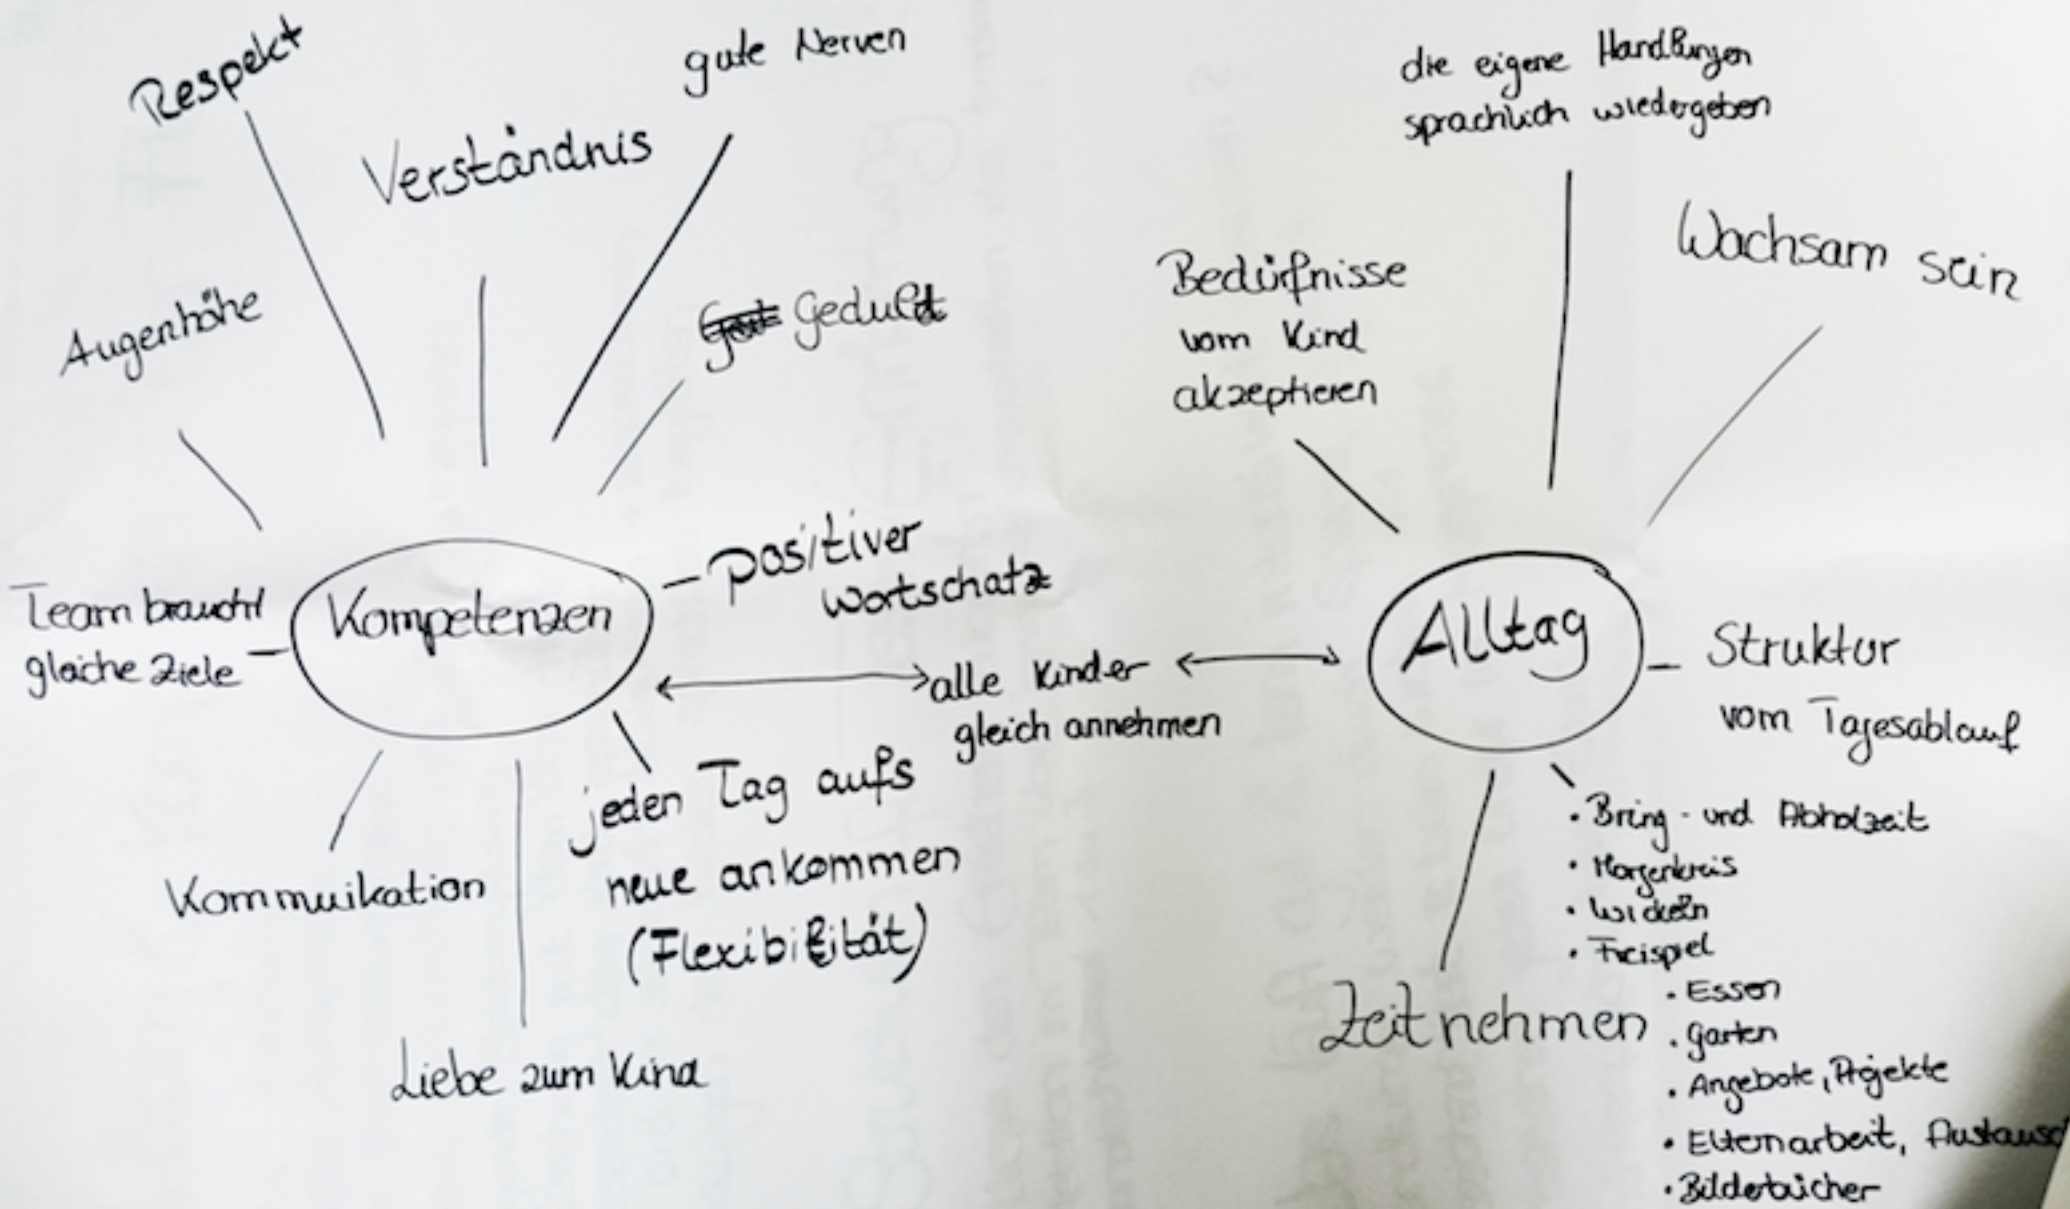 Respekt
Verständnis
gute Nerven
Augenhöhe
Geduld
Team braucht
gleiche Ziele
Kompetenzen
positiver
Wortschatz
alle Kinder
gleich annehmen
jeden Tag aufs
neue ankommen
(Flexibilität)
Kommuikation
Liebe zum Kind
die eigene Handlungen
sprachlich wiedergeben
Wachsam sein
Bedürfnisse
vom Kind
akzeptieren
Alltag
Struktur
vom Tagesablauf
• Bring- und Abholzeit
• Morgenkreis
• Wickeln
• Freispiel
• Essen
• Garten
• Angebote, Projekte
• Elternarbeit, Austausc
• Bilderbücher
Zeit nehmen